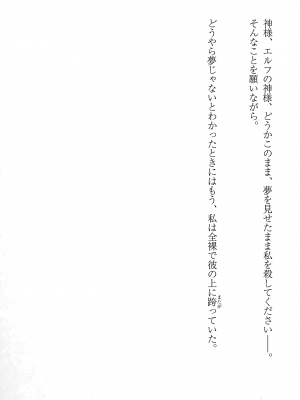 神様、エルフの神様、どうかこのまま、夢を見せたまま私を殺してください――。
そんなことを願いながら。
どうやら夢じゃないとわかったときにはもう、私は全裸で彼の上に跨っていた。